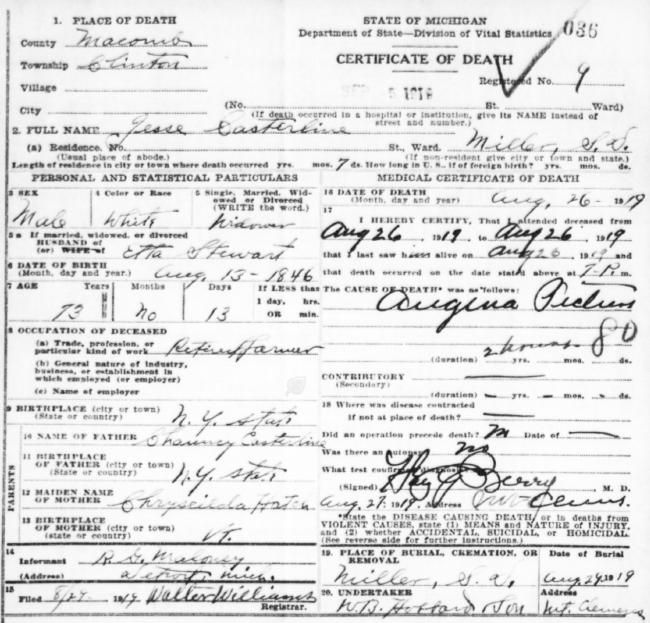 1. PLACE OF DEATH
County Macomb
Township Clinton
Village
City
STATE OF MICHIGAN
Department of State—Division of Vital Statistics
036
CERTIFICATE OF DEATH
Registered No. 9
1919
(No. St. Ward)
(If death occurred in a hospital or institution, give its NAME instead of
street and number.)
2. FULL NAME Jesse Casterline
(a) Residence. No. St., Ward. Miller, S.D.
(Usual place of abode.) (If non-resident give city or town and state.)
Length of residence in city or town where death occurred yrs. mos. 7 ds. How long in U. S., if of foreign birth? yrs. mos. ds.
PERSONAL AND STATISTICAL PARTICULARS
3 SEX
Male
4 Color or Race
White
5 Single, Married, Widowed or Divorced
(WRITE the word.)
Widower
5a If married, widowed, or divorced
HUSBAND of
(or) WIFE of Etta Stewart
6 DATE OF BIRTH
(Month, day and year.) Aug. 13 - 1846
7 AGE Years Months Days If LESS than
1 day, hrs.
OR min.
73 no 13
8 OCCUPATION OF DECEASED
(a) Trade, profession, or
particular kind of work Retired farmer
(b) General nature of industry,
business, or establishment in
which employed (or employer)
(c) Name of employer
9 BIRTHPLACE (city or town)
(State or country) N.Y. State
PARENTS
10 NAME OF FATHER
Chauncy Casterline
11 BIRTHPLACE
OF FATHER (city or town)
(State or country) N.Y. State
12 MAIDEN NAME
OF MOTHER
13 BIRTHPLACE
OF MOTHER (city or town)
(State or country) Vt.
14
Informant R. G. Maloney
(Address) Detroit, Mich.
15
Filed 8/27 1919 Walter Williams
Registrar.
MEDICAL CERTIFICATE OF DEATH
16 DATE OF DEATH
(Month, day and year) Aug. 26 - 1919
17
I HEREBY CERTIFY, That I attended deceased from
Aug 26, 1919 to Aug 26, 1919
that I last saw him alive on Aug 26 1919 and
that death occurred on the date stated above at 7-P. m.
The CAUSE OF DEATH* was as follows:
Angina Pectoris
80
(duration) 2 hours yrs. mos. ds.
CONTRIBUTORY
(Secondary)
(duration) — yrs. — mos. — ds.
18 Where was disease contracted
If not at place of death?
Did an operation precede death? Date of —
Was there an autopsy? no
What test confirmed diagnosis?
(Signed) Berry M. D.
Aug 27. 1919. Address Mt Clemens.
*State the DISEASE CAUSING DEATH, or in deaths from
VIOLENT CAUSES, state (1) MEANS and NATURE OF INJURY,
and (2) whether ACCIDENTAL, SUICIDAL, or HOMICIDAL.
(See reverse side for further instructions.)
19. PLACE OF BURIAL, CREMATION, OR
REMOVAL
Miller, S.D.
Date of Burial
Aug 29 1919
20. UNDERTAKER
Son
Address
Mt. Clemens